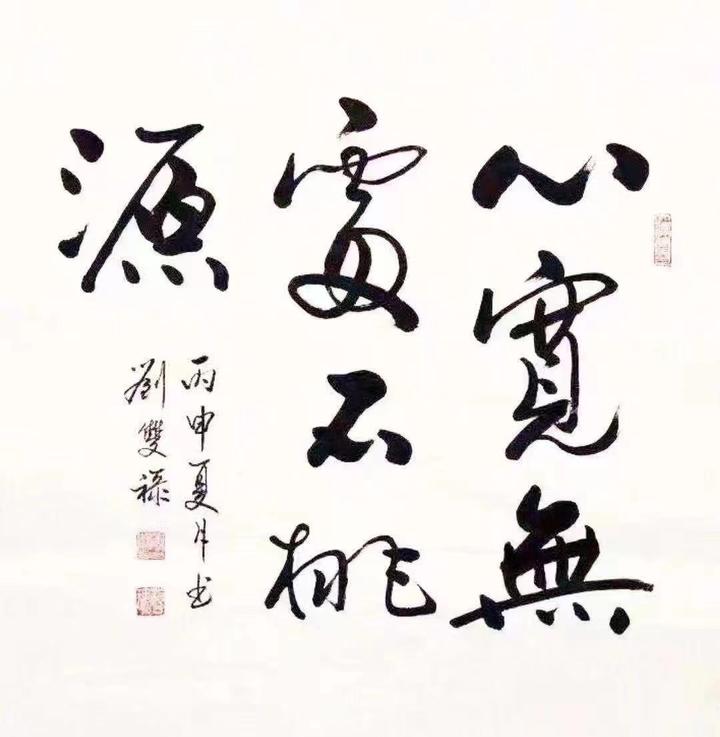 心寬無
處不桃
源
丙申夏月书
劉雙祿